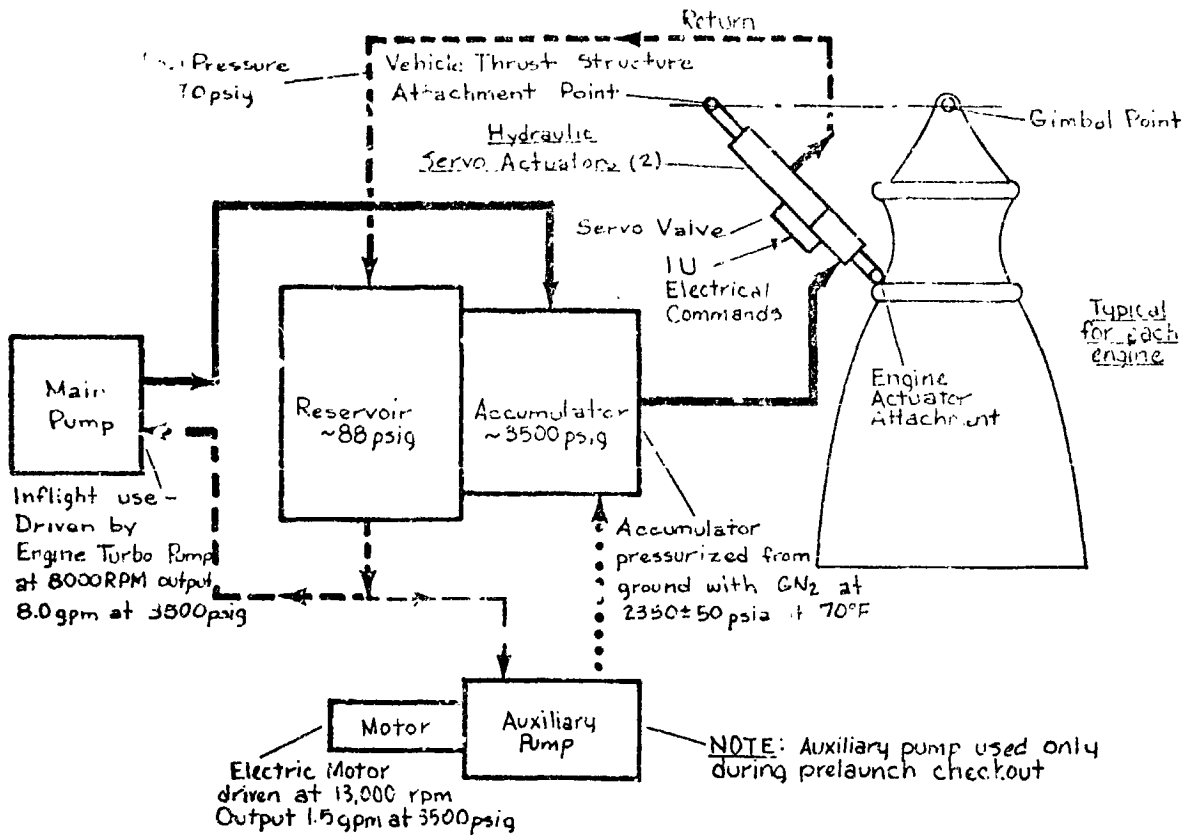 Return
Pressure
Vehicle Thrust Structure
Attachment Point
Gimbal Point
Hydraulic
Servo Actuators (2)
Servo Valve
IU
Electrical
Commands
Typical
for each
engine
Main
Pump
Reservoir
~88 psig
Accumulator
~3500 psig
Engine
Actuator
Attachment
Inflight use -
Driven by
Engine Turbo Pump
at 8000 RPM output
8.0 gpm at 3500 psig
Accumulator
pressurized from
ground with GN2 at
2350±50 psia 70°F
Motor
Auxiliary
Pump
Electric Motor
driven at 13,000 rpm
Output 1.5 gpm at 3500 psig
NOTE: Auxiliary pump used only
during prelaunch checkout